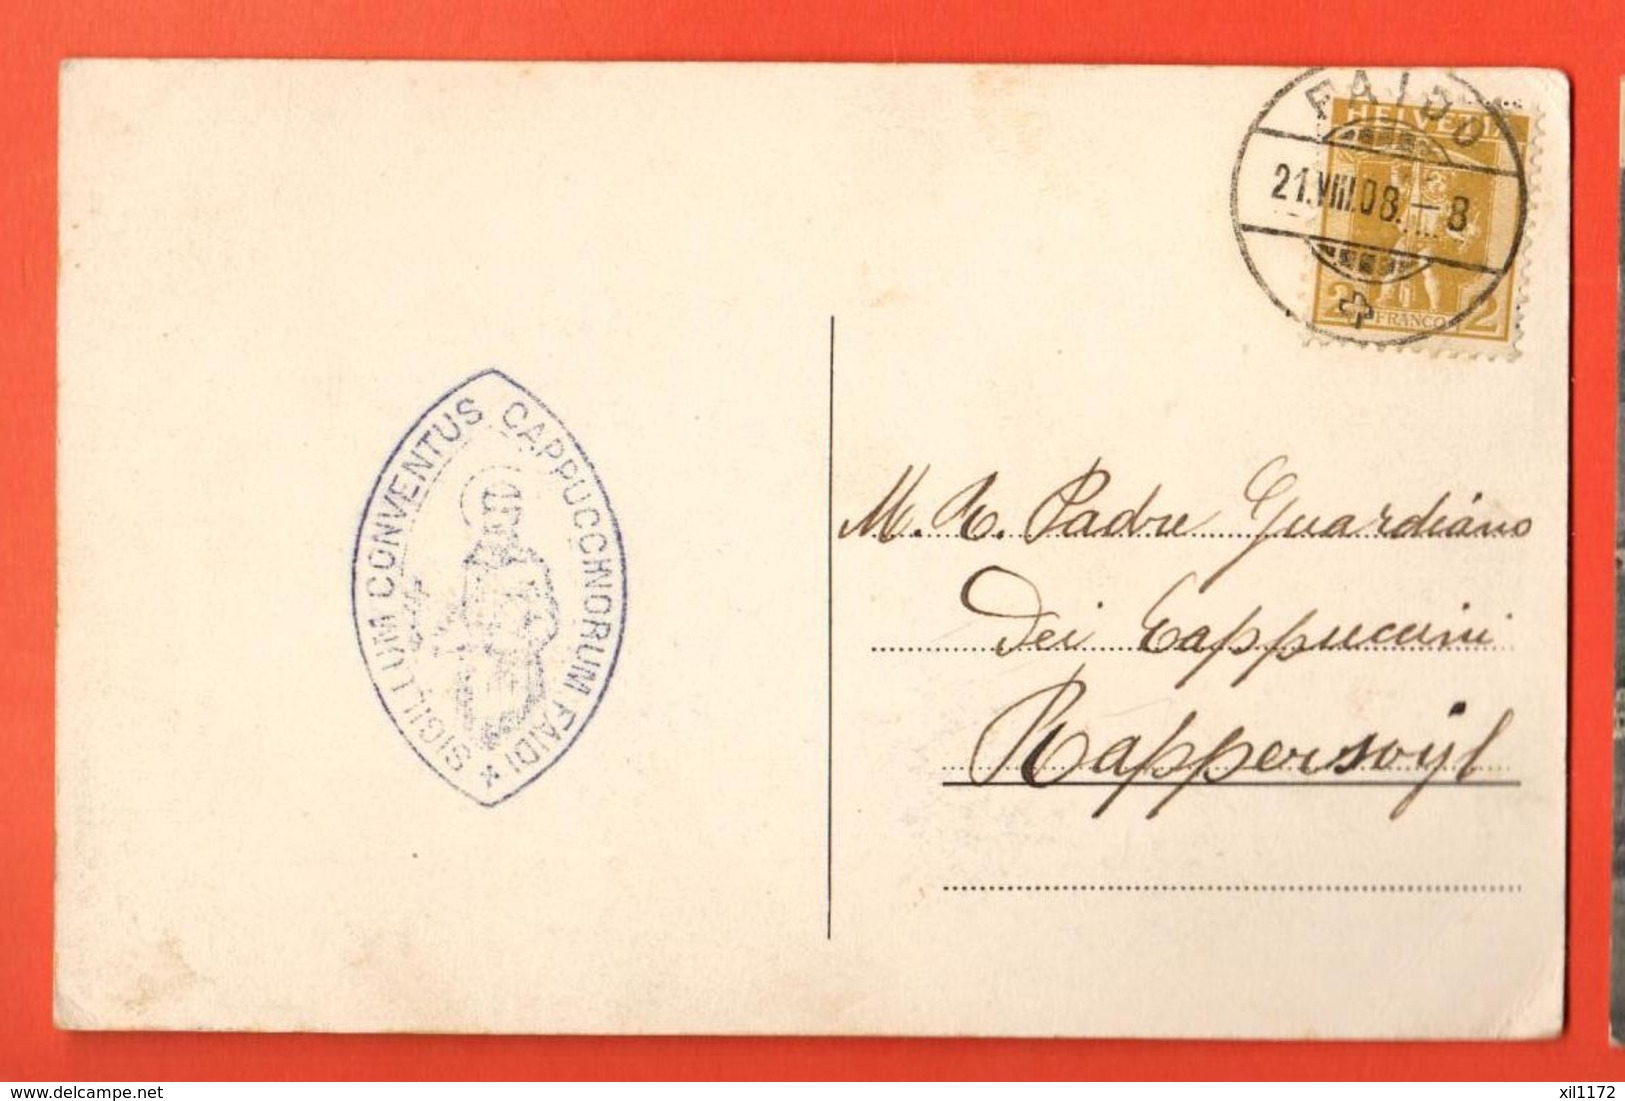 FAIDO
HELVETIA
21.VIII.08.–8
2 FRANCO 2
SIGILLUM CONVENTUS CAPPUCCINORUM FAIDI
M. R. Padre Guardiano
dei Cappuccini
Rapperswyl
delcampe.net
xil1172